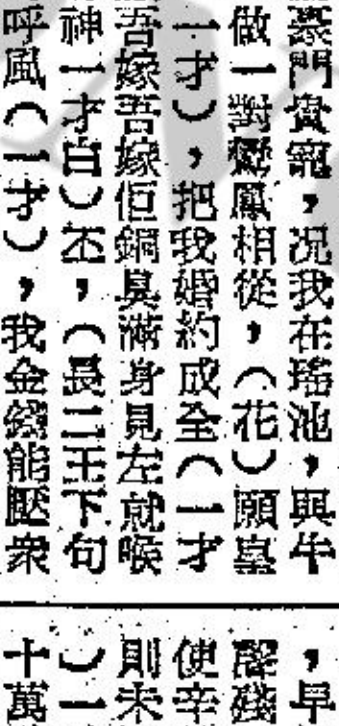 豪門貴寵，况我在瑤池，與牛
做一對鸞鳳相從，（花）願皇
一才），把我婚約成全（一才
吾嫁吾嫁佢銅臭滿身見左就喉
神一才白）丕，（長二王下句
呼風（一才），我金錢能壓衆
，早
殘
使辛
則未
）一
十萬